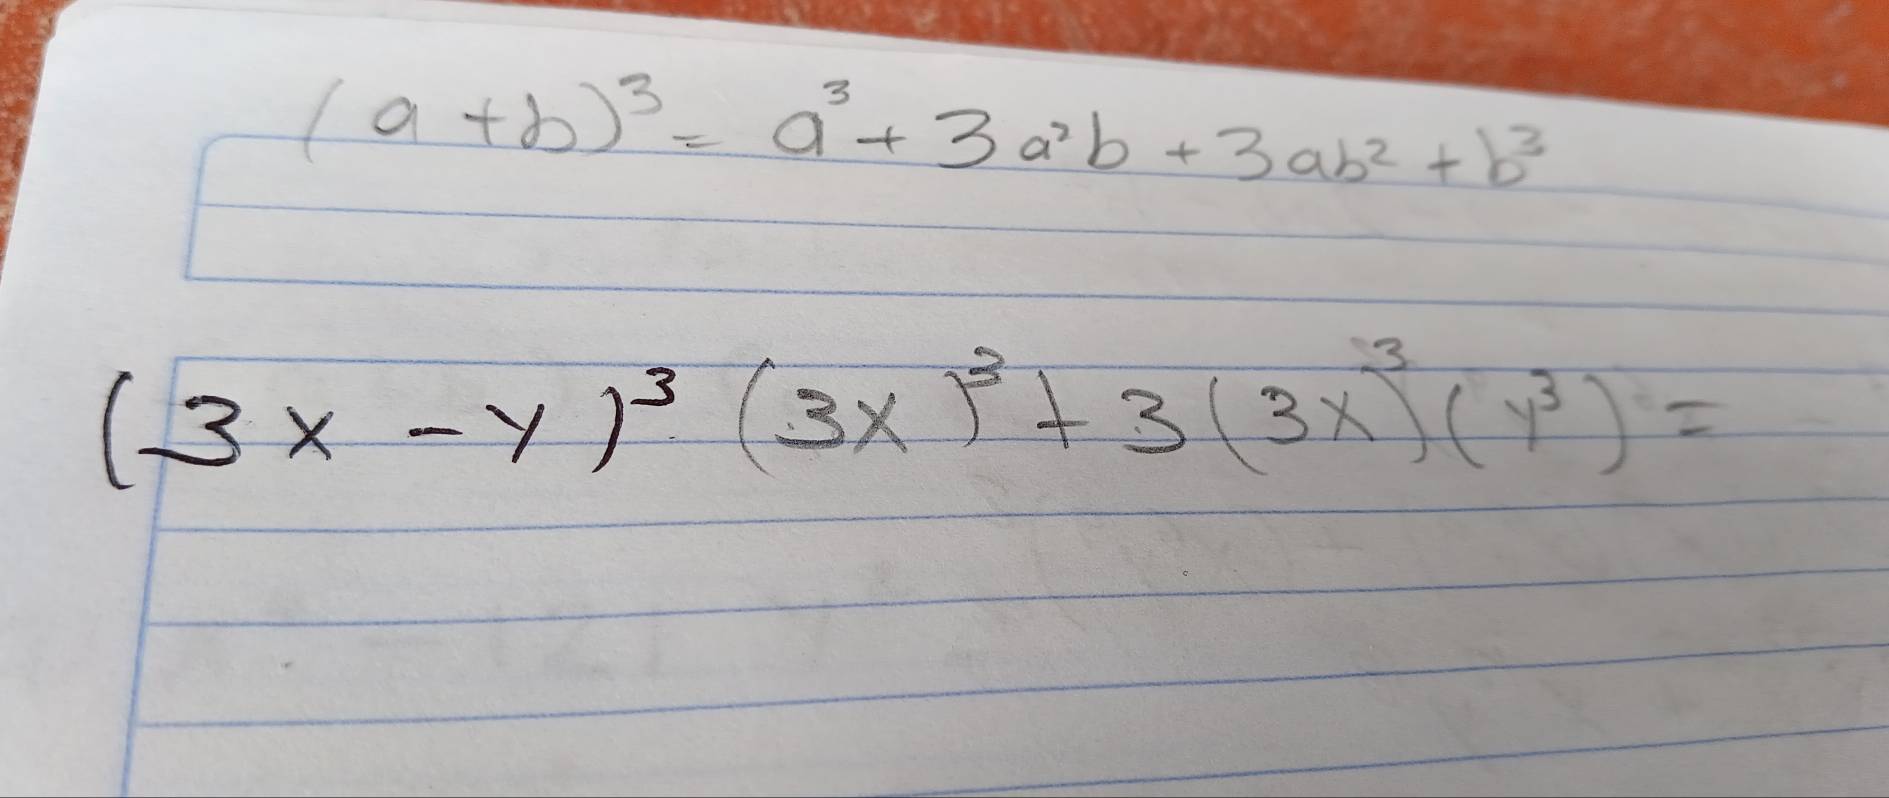 (a+b)³ = a³ + 3a²b + 3ab² + b³
(3x - y)³ (3x)³ + 3(3x³)(y³) =